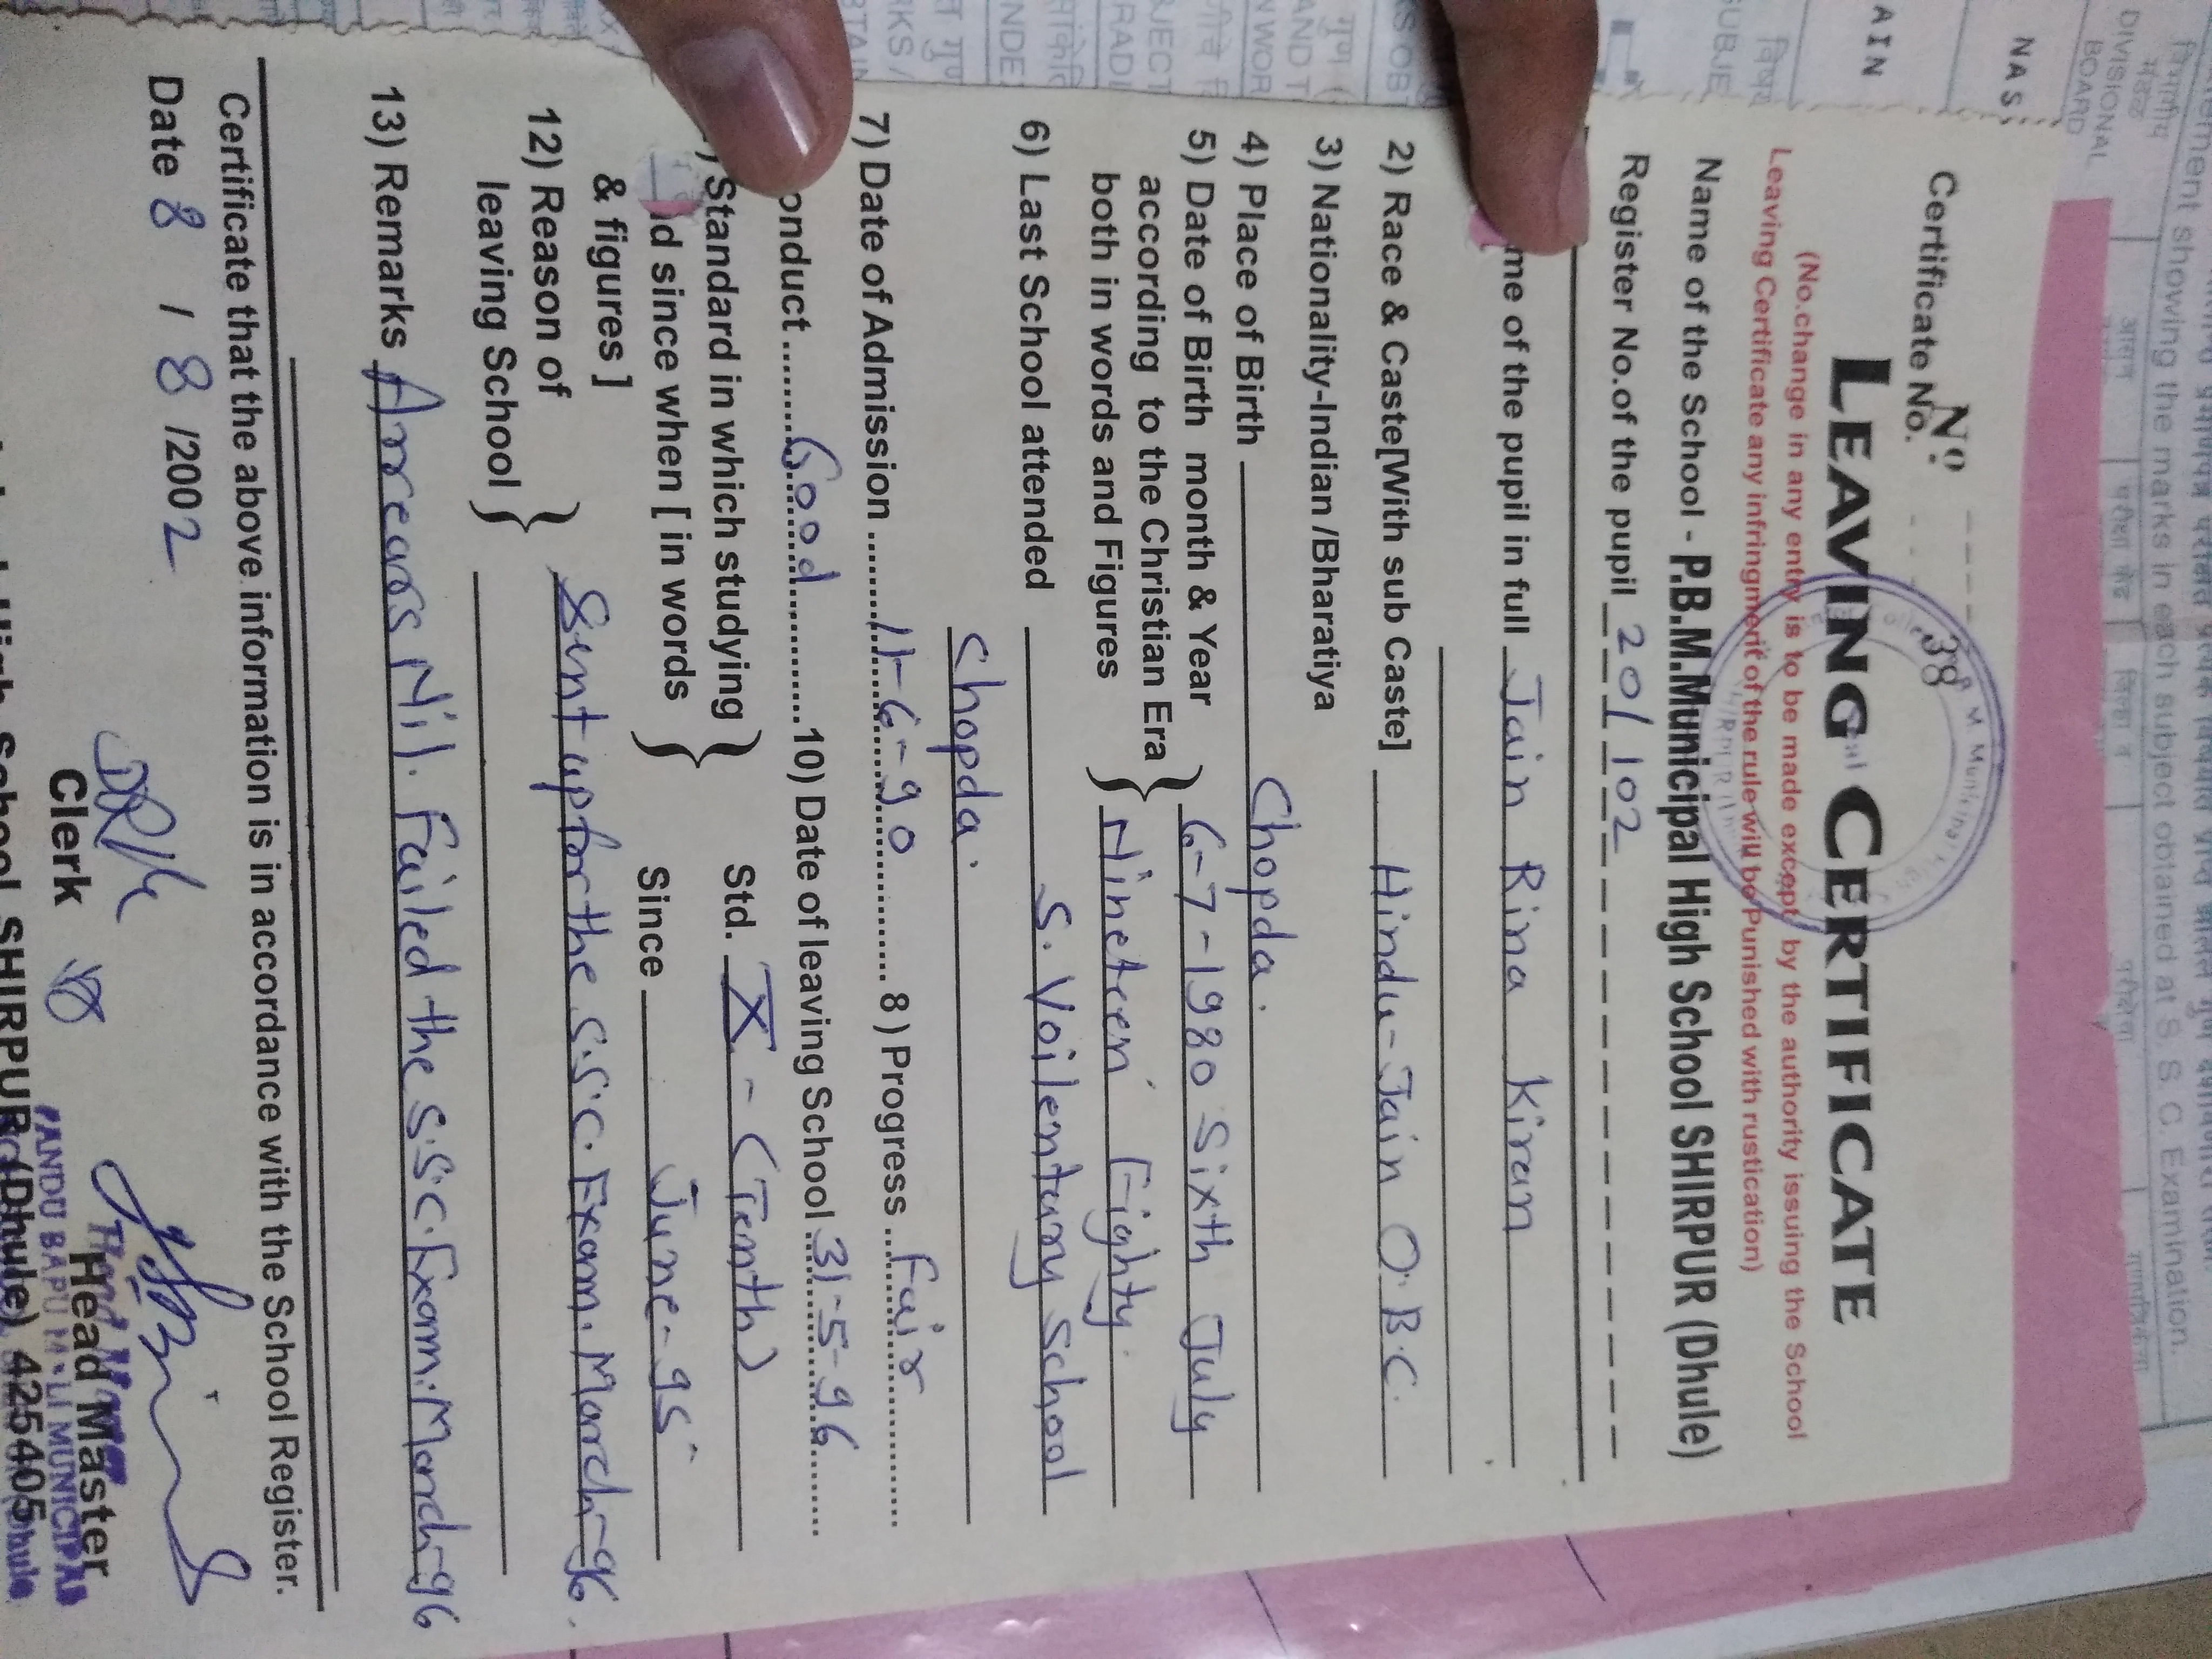 Nº
Certificate No. 38
LEAVING CERTIFICATE
(No.change in any entry is to be made except by the authority issuing the School
Leaving Certificate any infringment of the rule will be Punished with rustication)
Name of the School - P.B.M.Municipal High School SHIRPUR (Dhule)
Register No.of the pupil 20/102
me of the pupil in full Jain Rina Kiran
2) Race & Caste[With sub Caste] Hindu-Jain O.B.C.
3) Nationality-Indian /Bharatiya
4) Place of Birth Chopda.
5) Date of Birth month & Year
according to the Christian Era
both in words and Figures
} 6-7-1980 Sixth July
} Nineteen Eighty.
6) Last School attended S. Voilentany School
Chopda.
7) Date of Admission 11-6-90 8) Progress Fair
onduct Good 10) Date of leaving School 31-5-96
) Standard in which studying
d since when [ in words
& figures ]
} Std. X - (Tenth)
Since June-95
12) Reason of
leaving School
} Sent up for the S.S.C. Exam. March-96.
13) Remarks Arrears Nil. Failed the S.S.C. Exam. March-96
Certificate that the above information is in accordance with the School Register.
Date 8 / 8 /2002
Clerk
Head Master
High School SHIRPUR (Dhule) 425405
ment showing the marks in each subject obtained at S. S. C. Examination.
DIVISIONAL
BOARD
NAS
AIN